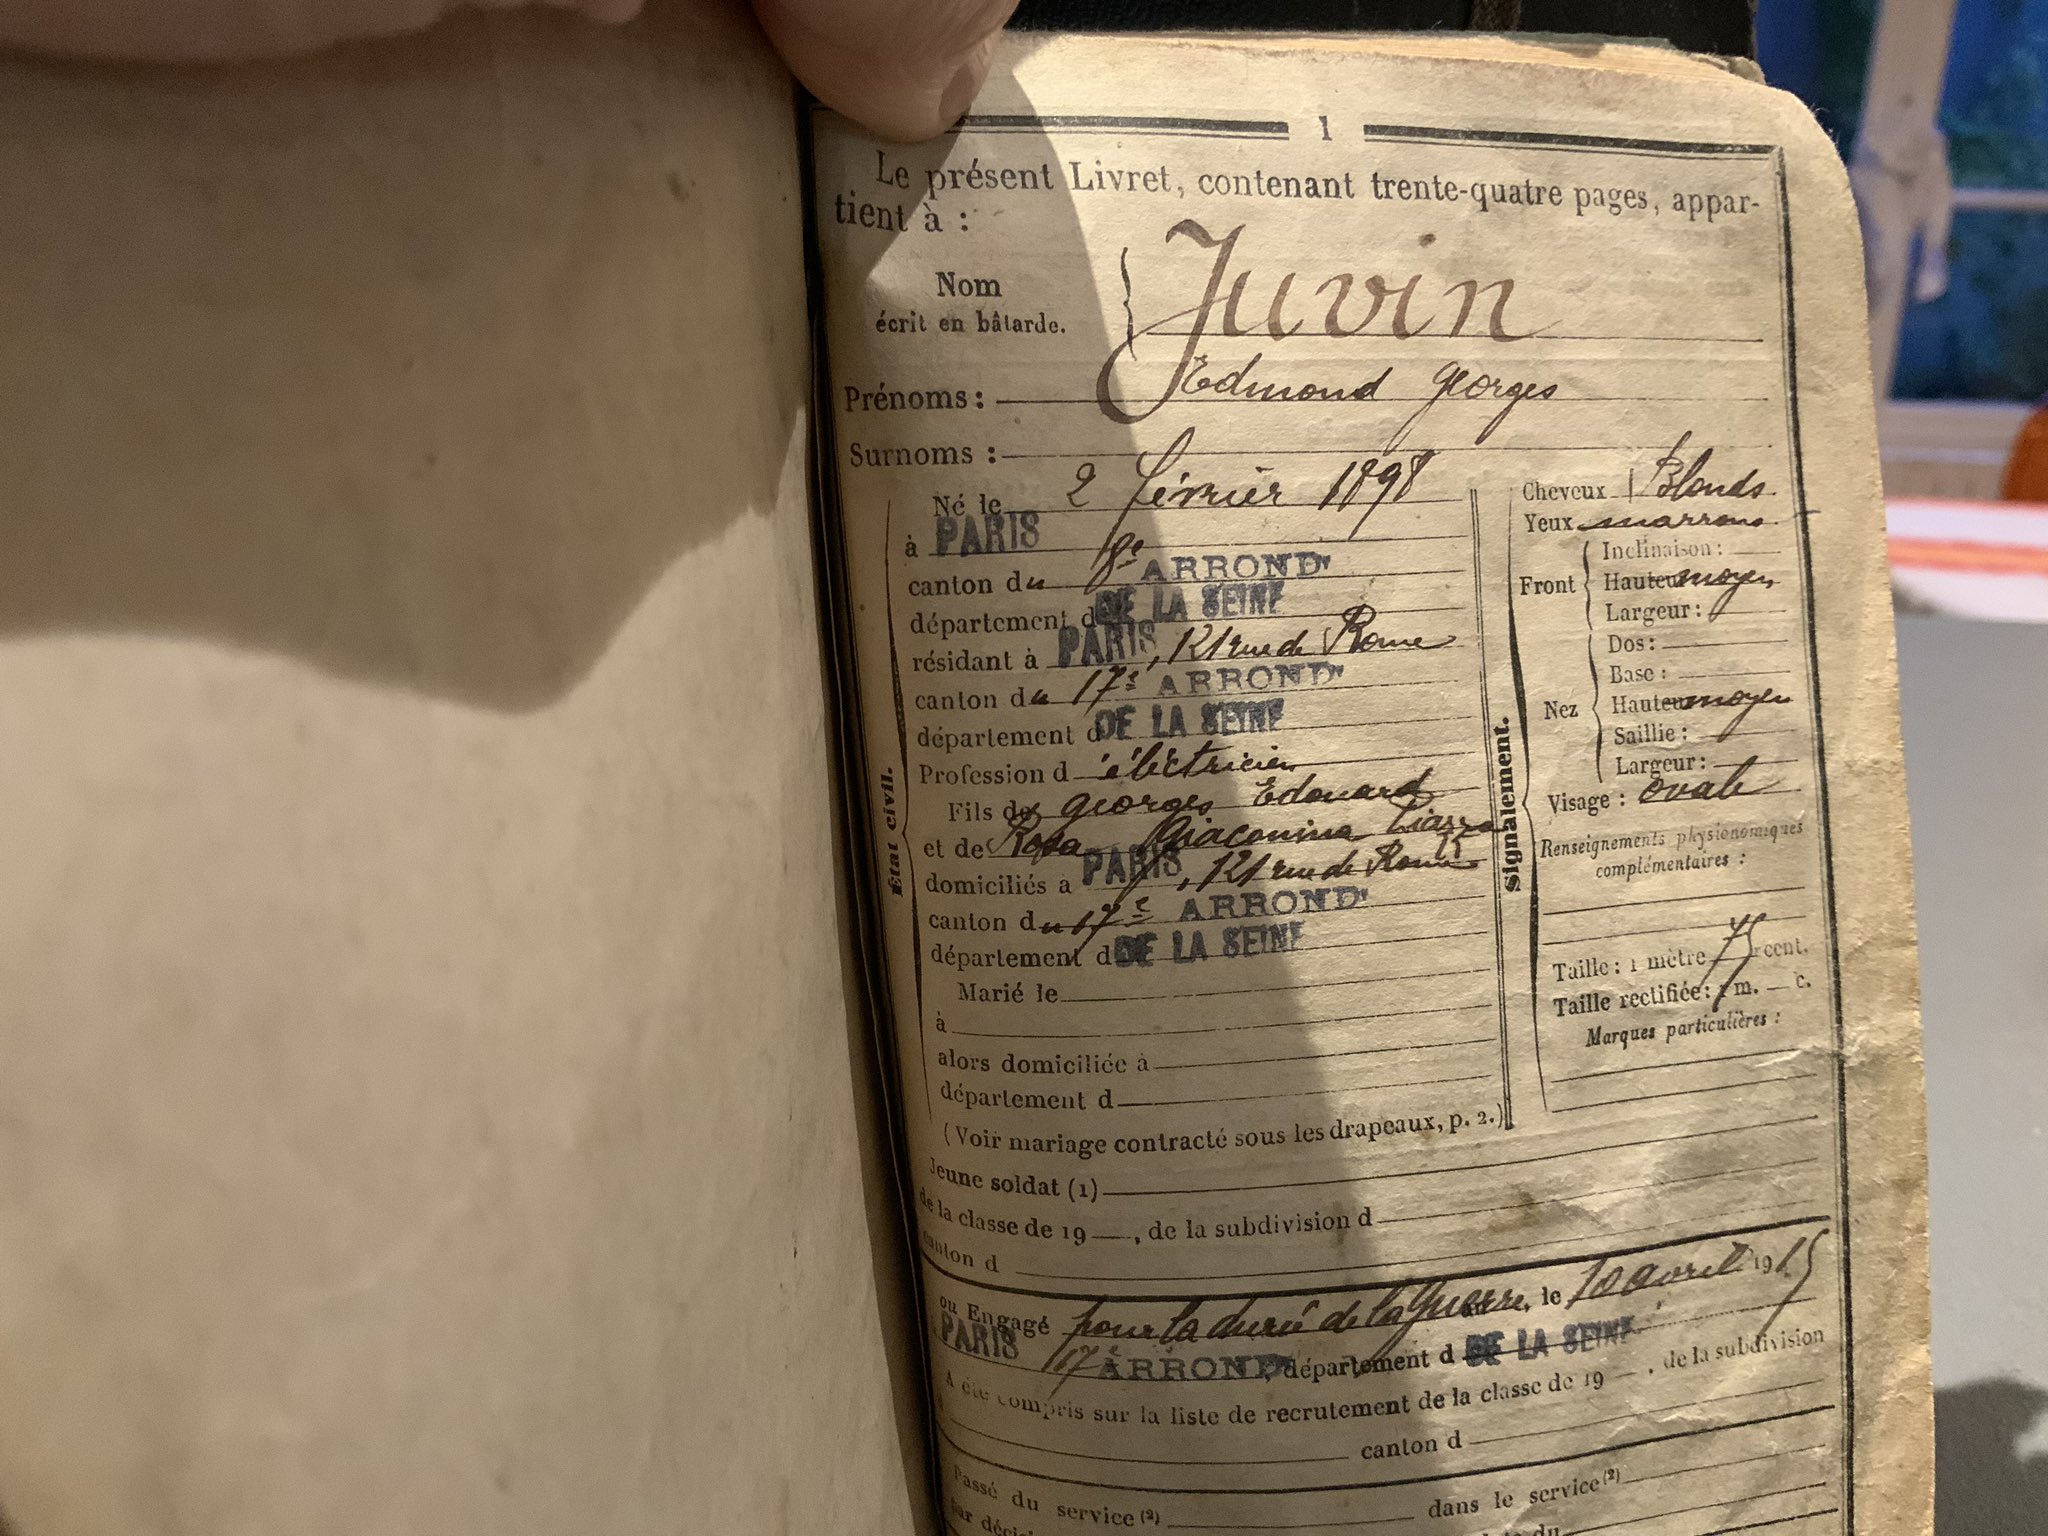 1
Le présent Livret, contenant trente-quatre pages, appar-
tient à :
Nom
écrit en bâtarde.
Juvin
Prénoms : Edmond Georges
Surnoms :
État civil.
Né le 2 février 1898
à PARIS
canton du 8e ARRONDt
département d DE LA SEINE
résidant à PARIS, 121 rue de Rome
canton du 17e ARRONDt
département d DE LA SEINE
Profession d électricien
Fils de Georges Edouard
et de Rosa Giacomina
domiciliés à PARIS, 121 rue de Rome
canton du 17e ARRONDt
département d DE LA SEINE
Marié le
à
alors domiciliée à
département d
(Voir mariage contracté sous les drapeaux, p. 2.)
Signalement.
Cheveux Blonds
Yeux marrons
Front
Inclinaison :
Hauteur moyen
Largeur :
Nez
Dos :
Base :
Hauteur moyen
Saillie :
Largeur :
Visage : ovale
Renseignements physionomiques
complémentaires :
Taille : 1 mètre 75 cent.
Taille rectifiée : 1 m. c.
Marques particulières :
Jeune soldat (1)
de la classe de 19 , de la subdivision d
canton d
ou Engagé pour la durée de la Guerre, le 10 avril 1915
PARIS 17e ARRONDt, département d DE LA SEINE
A été compris sur la liste de recrutement de la classe de 19 , de la subdivision
canton d
Passé du service (2) dans le service (2)